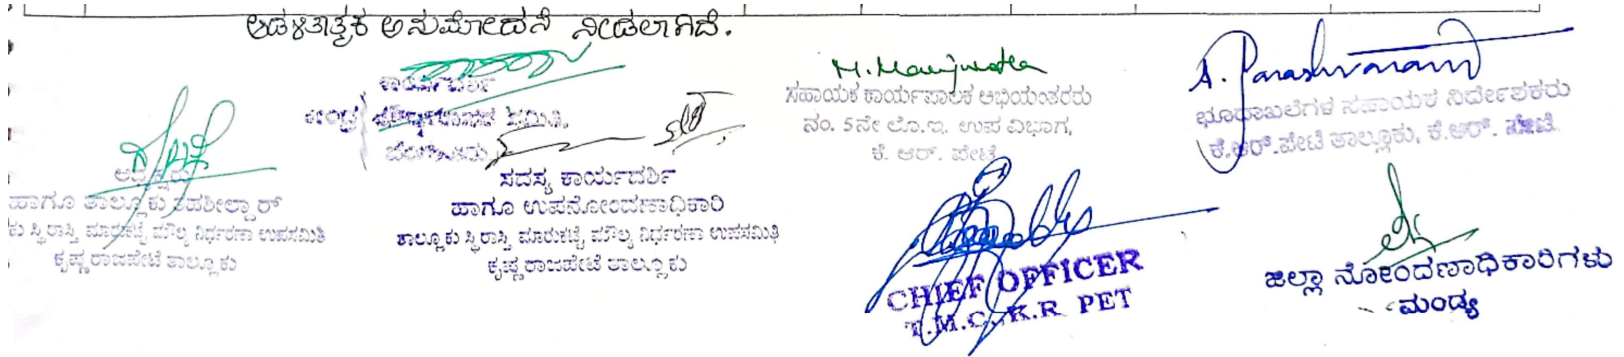 ಆಡಳಿತಾತ್ಮಕ ಅನುಮೋದನೆ ನೀಡಲಾಗಿದೆ.
ಅಧ್ಯಕ್ಷರು
ಹಾಗೂ ತಾಲ್ಲೂಕು ತಹಶೀಲ್ದಾರ್
ಕು ಸ್ಥಿರಾಸ್ತಿ ಮಾರುಕಟ್ಟೆ ಮೌಲ್ಯ ನಿರ್ಧರಣಾ ಉಪಸಮಿತಿ
ಕೃಷ್ಣರಾಜಪೇಟೆ ತಾಲ್ಲೂಕು
ಕಾರ್ಯದರ್ಶಿ
ಕೇಂದ್ರ ಮೌಲ್ಯಮಾಪನ ಸಮಿತಿ,
ಬೆಂಗಳೂರು
ಸದಸ್ಯ ಕಾರ್ಯದರ್ಶಿ
ಹಾಗೂ ಉಪನೋಂದಣಾಧಿಕಾರಿ
ತಾಲ್ಲೂಕು ಸ್ಥಿರಾಸ್ತಿ ಮಾರುಕಟ್ಟೆ ಮೌಲ್ಯ ನಿರ್ಧರಣಾ ಉಪಸಮಿತಿ
ಕೃಷ್ಣರಾಜಪೇಟೆ ತಾಲ್ಲೂಕು
ಸಹಾಯಕ ಕಾರ್ಯಪಾಲಕ ಅಭಿಯಂತರರು
ನಂ. 5ನೇ ಲೊ.ಇ. ಉಪ ವಿಭಾಗ,
ಕೆ. ಆರ್. ಪೇಟೆ
CHIEF OFFICER
T.M.C., K.R. PET
A. Parashuram
ಭೂದಾಖಲೆಗಳ ಸಹಾಯಕ ನಿರ್ದೇಶಕರು
ಕೆ.ಆರ್.ಪೇಟೆ ತಾಲ್ಲೂಕು, ಕೆ.ಆರ್. ಪೇಟೆ.
ಜಿಲ್ಲಾ ನೋಂದಣಾಧಿಕಾರಿಗಳು
ಮಂಡ್ಯ